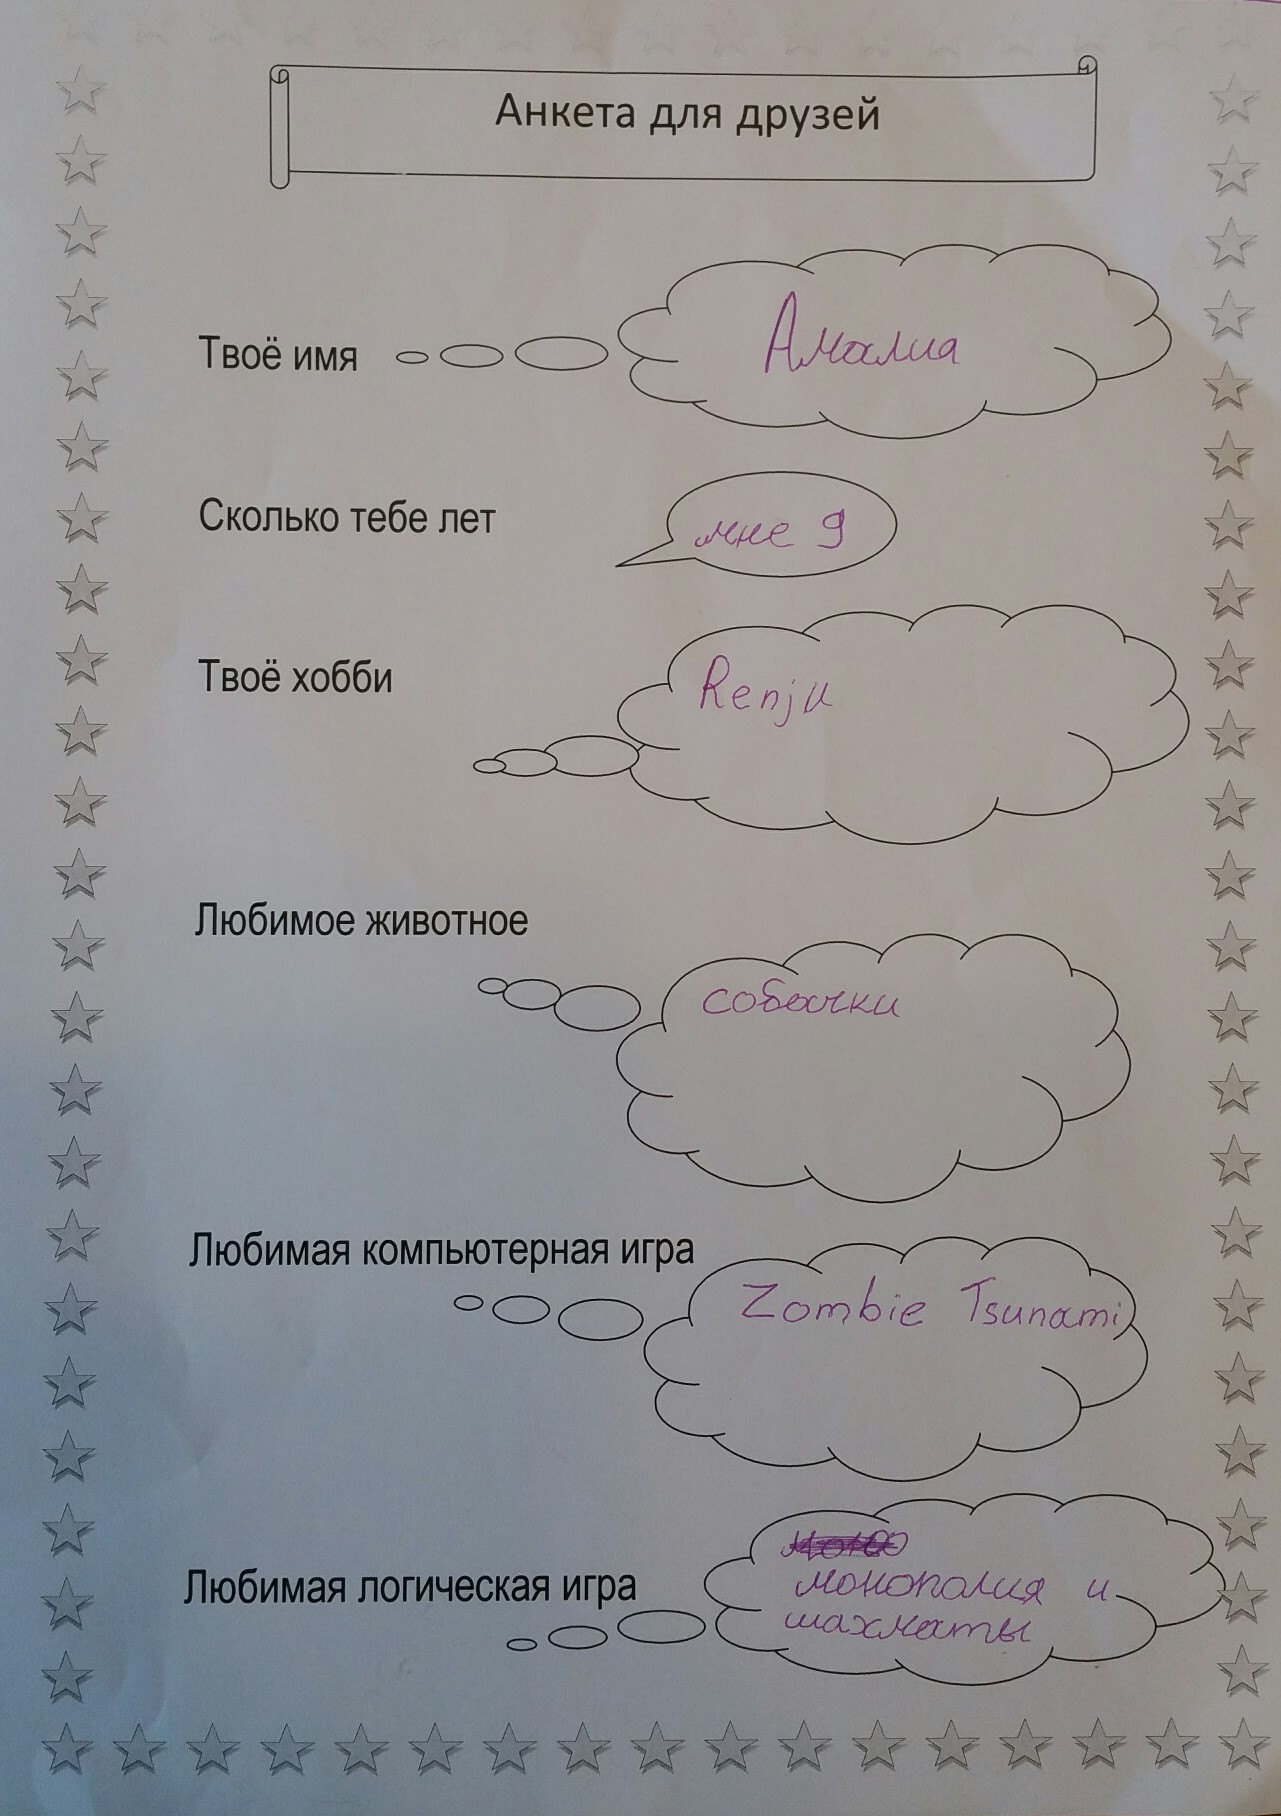 Анкета для друзей
Твоё имя
Амалиа
Сколько тебе лет
мне 9
Твоё хобби
Renju
Любимое животное
собачки
Любимая компьютерная игра
Zombie Tsunami
Любимая логическая игра
монополия и
шахматы